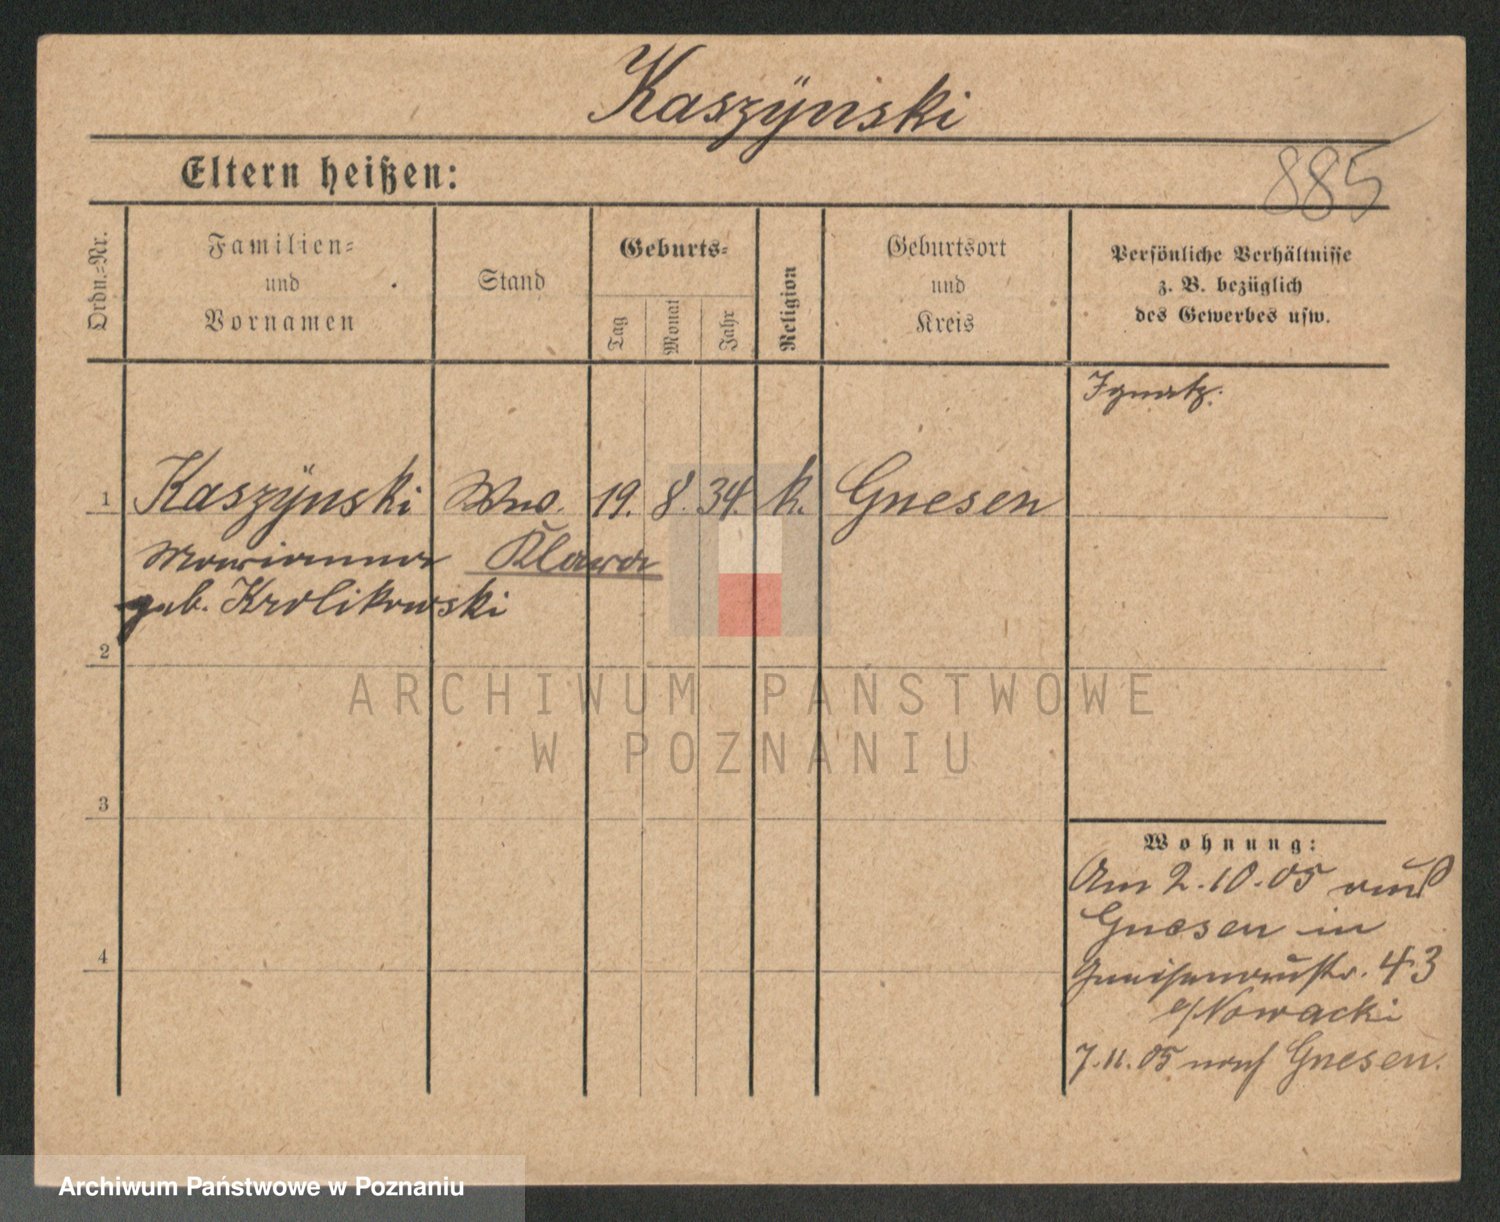 Kaszÿnski
885
Eltern heißen:
Ordn.-Nr.
Familien-
und
Vornamen
Stand
Geburts-
Tag
Monat
Jahr
Religion
Geburtsort
und
Kreis
Persönliche Verhältnisse
z. B. bezüglich
des Gewerbes usw.
Ignatz.
1 Kaszÿnski Wwe. 19. 8. 34. k. Gnesen
Marianna Klara
geb. Krolikowski
2
ARCHIWUM PAŃSTWOWE
W POZNANIU
3
Wohnung:
Am 2.10.05 aus
Gnesen in
4
Gneisenaustr. 43
b/Nowacki
7.11.05 nach Gnesen.
Archiwum Państwowe w Poznaniu